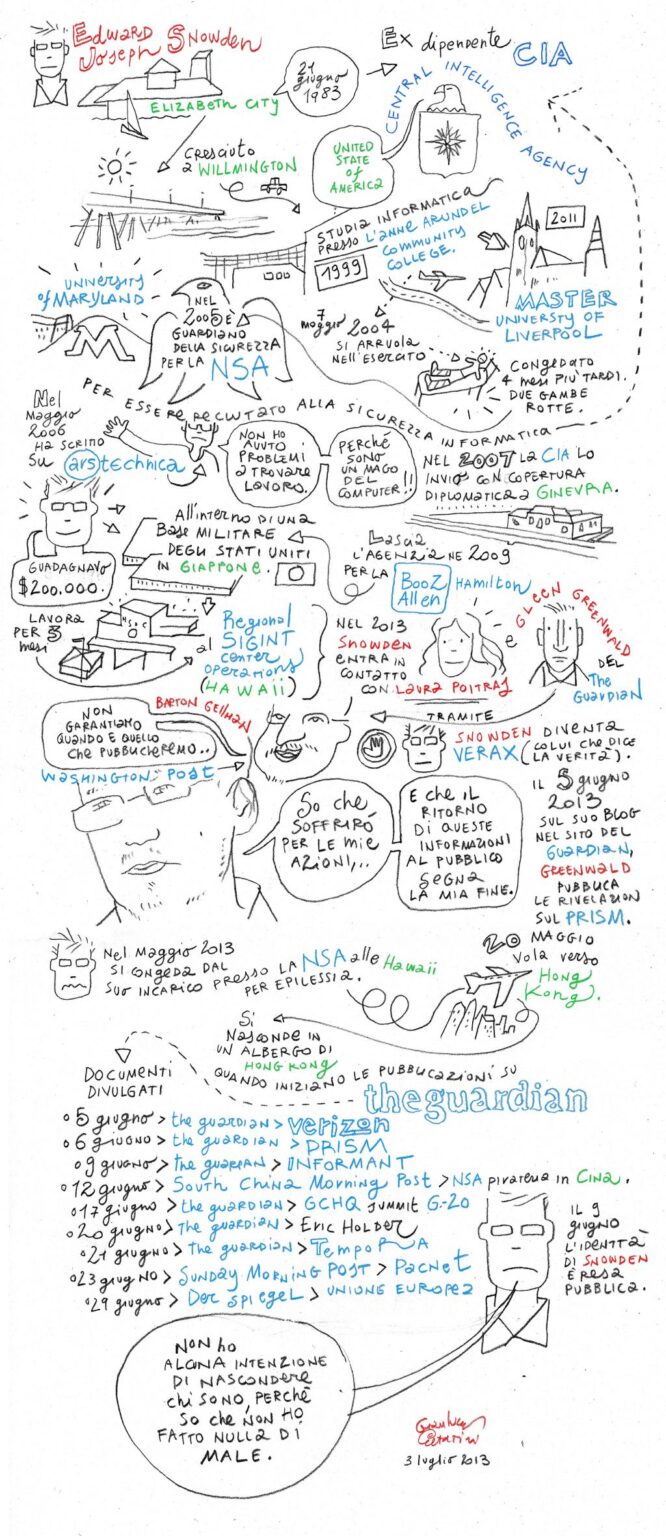 Edward
Joseph Snowden
Ex dipendente
CIA
21
giugno
1983
CENTRAL INTELLIGENCE AGENCY
ELIZABETH CITY
cresciuto
a WILLMINGTON
UNITED
STATE
of
AMERICA
STUDIA INFORMATICA
PRESSO L'ANNE ARUNDEL
COMMUNITY
COLLEGE.
1999
2011
MASTER
UNIVERSTY OF
LIVERPOOL
UNIVERSITY
of MARYLAND
M
NEL
2005 È
GUARDIANO
DELLA SICUREZZA
PER LA NSA
7
maggio 2004
SI ARRUOLA
NELL'ESERCITO
CONGEDATO
4 MESI PIÙ TARDI.
DUE GAMBE
ROTTE.
PER ESSERE RECLUTATO ALLA SICUREZZA INFORMATICA
Nel
Maggio
2006
HA SCRITTO
SU arstechnica
NON HO
AVUTO
PROBLEMI
A TROVARE
LAVORO.
PERCHÉ
SONO
UN MAGO
DEL
COMPUTER!!
NEL 2007 LA CIA LO
INVIÒ CON COPERTURA
DIPLOMATICA A GINEVRA.
GUADAGNAVO
$200.000.
All'INTERNO DI UNA
Base MILITARE
DEGLI STATI UNITI
IN GIAPPONE.
Lascia
L'AGENZIA NE 2009
PER LA
Booz
Allen
HAMILTON
LAVORA
PER 3
mesi
al Regional
SIGINT
center
operations
(HAWAII)
NEL 2013
SNOWDEN
ENTRA IN
CONTATTO
CON LAURA POITRAS
e
GLEEN GREENWALD
DEL
The
GUARDIAN
NON
GARANTIAMO
QUANDO E QUELLO
che PUBBLICHEREMO..
BARTON GELLMAN
WASHINGTON POST
TRAMITE
SNOWDEN DIVENTA
VERAX (COLUI CHE DICE
LA VERITÀ).
So che
SOFFRIRÒ
PER LE MIE
AZIONI,..
E CHE IL
RITORNO
DI QUESTE
INFORMAZIONI
AL PUBBLICO
SEGNA
LA MIA FINE.
IL 5 giugno
2013
SUL SUO BLOG
NEL SITO DEL
GUARDIAN,
GREENWALD
PUBBLICA
LE RIVELAZIONI
SUL PRISM.
Nel Maggio 2013
SI CONGEDA DAL
SUO INCARICO PRESSO LA NSA alle Hawaii
PER EPILESSIA.
20 MAGGIO
Vola verso
HONG
KONG.
Si
NASCONDE IN
UN ALBERGO DI
HONG KONG
QUANDO INIZIANO LE PUBBLICAZIONI SU
theguardian
DOCUMENTI
DIVULGATI
5 giugno > the guardian > verizon
6 giugno > the guardian > PRISM
9 giugno > the guardian > INFORMANT
12 giugno > South China Morning Post > NSA pirateria in Cina.
17 giugno > the guardian > GCHQ summit G-20
20 giugno > the guardian > Eric Holder
21 giugno > the guardian > TEMPORA
23 giugno > SUNDAY MORNING POST > PACNET
29 giugno > Der Spiegel > UNIONE EUROPEA
IL 9
giugno
L'IDENTITÀ
DI SNOWDEN
È RESA
PUBBLICA.
NON ho
ALCUNA INTENZIONE
DI NASCONDERE
chi SONO, PERCHÉ
SO CHE NON HO
FATTO NULLA DI
MALE.
3 luglio 2013